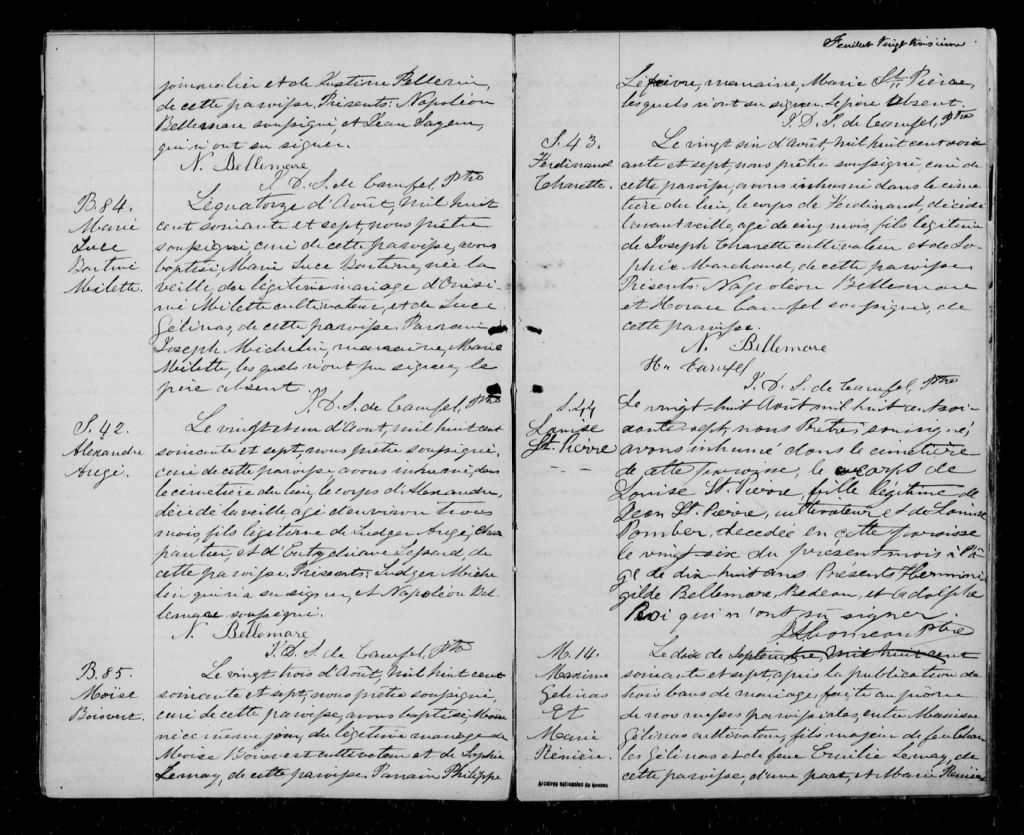 journalier et de Justine Bellerin,
de cette paroisse. Présents: Napoléon
Bellemare soussigné, et Jean
qui n'ont su signer.
N. Bellemare
J. D. S. de Carufel, Ptre
B. 84.
Marie
Luce
Milette.
Le quatorze d'Août, mil huit
cent soixante et sept, nous prêtre
soussigné, curé de cette paroisse, avons
baptisé, Marie Luce née la
veille du légitime mariage d'Onési
me Milette cultivateur, et de Luce
Gélinas, de cette paroisse. Parrain
Joseph Michelin, marraine, Marie
Milette, lesquels n'ont pu signer, le
père absent.
J. D. S. de Carufel, Ptre
S. 42.
Alexandre
Augé.
Le vingt et un d'Août, mil huit cent
soixante et sept, nous prêtre soussigné,
curé de cette paroisse avons inhumé, dans
le cimetière du lieu, le corps d'Alexandre,
décédé la veille agé d'environ trois
mois fils légitime de Ludger Augé, Char
pentier, et d'Eutychiave
cette paroisse. Présents: Ludger Miche
lin qui n'a su signer, et Napoléon Bel
lemare soussigné.
N. Bellemare
J. D. S. de Carufel, Ptre
B. 85.
Moïse
Boisvert.
Le vingt trois d'Août, mil huit cent
soixante et sept, nous prêtre soussigné,
curé de cette paroisse, avons baptisé Moïse
né ce même jour, du légitime mariage de
Moïse Boisvert cultivateur et de Sophie
Lemay, de cette paroisse, Parrain Philippe
Feuillet Vingt troisième
Lefeivre, marraine, Marie St. Pierre,
lesquels n'ont su signer. Le père absent.
J. D. S. de Carufel, Ptre
S. 43.
Ferdinand
Charette.
Le vingt six d'Août, mil huit cent soix
ante et sept, nous prêtre soussigné, curé de
cette paroisse, avons inhumé dans le cime
tière du lieu, le corps de Ferdinand, décédé
l'avant veille, agé de cinq mois, fils légitime
de Joseph Charette cultivateur et de So-
phie Marchand, de cette paroisse
Présents: Napoléon Bellemare
et Horace Carufel soussignés, de
cette paroisse.
N. Bellemare
Hce Carufel
J. D. S. de Carufel, Ptre
S. 44
Louise
St. Pierre
Le vingt-huit Août mil huit cent soi-
xante sept, nous Prêtre, soussigné,
avons inhumé dans le cimetière
de cette paroisse, le corps de
Louise St. Pierre, fille légitime de
Jean St. Pierre, cultivateur et de Louise
décedée en cette paroisse
le vingt-six du présent mois à l'â-
ge de dix-huit ans. Présents Hermini
gilde Bellemare, Bedeau, et Adolphe
Roi qui n'ont su signer.
Ptre
M. 14.
Maxime
Gélinas
Et
Marie
Renière.
Le de Septembre, mil huit cent
soixante et sept, après la publication de
trois bans de mariage, faite au prône
de nos messes paroissiales, entre Maxime
Gélinas cultivateur, fils majeur de feu Char
les Gélinas et de feue Emilie Lemay, de
cette paroisse, d'une part, et Marie Renière
Archives nationales du Québec